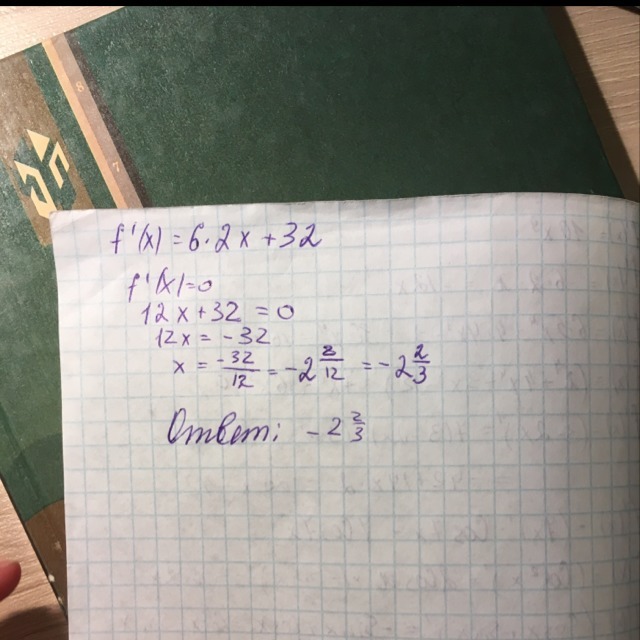 f'(x) = 6·2x + 32
f'(x) = 0
12x + 32 = 0
12x = -32
x = -32/12 = -2 8/12 = -2 2/3
Ответ: -2 2/3